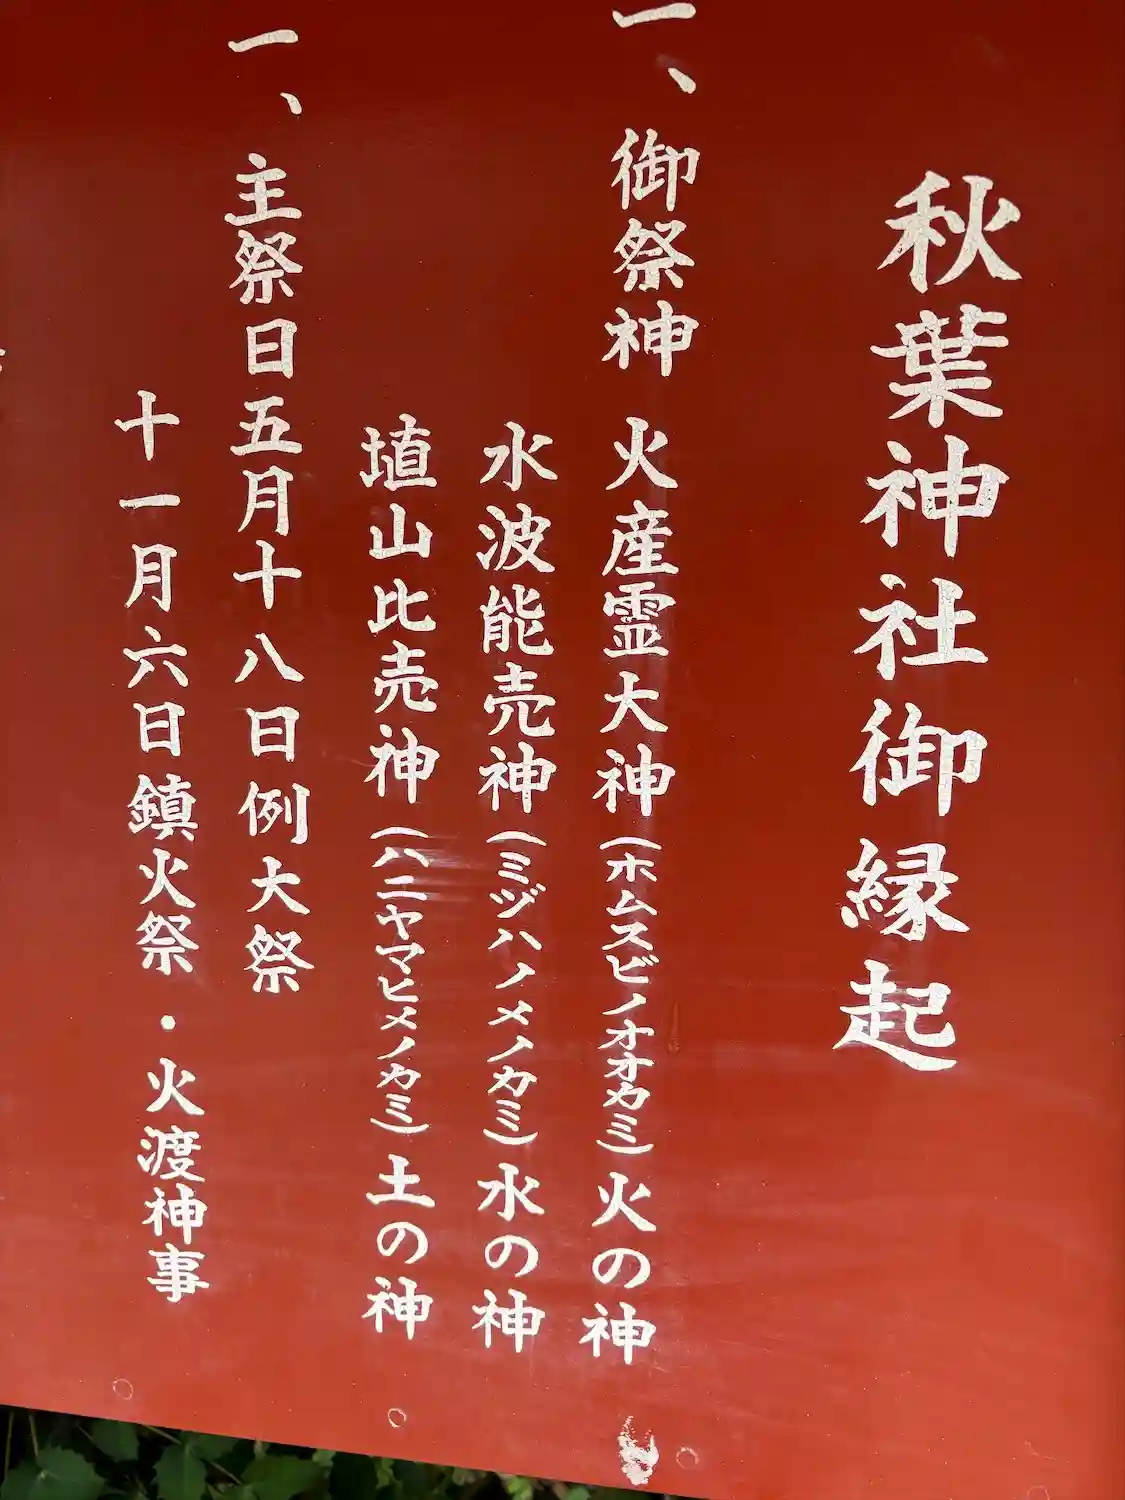 秋葉神社御縁起
一、御祭神 火産霊大神(ホムスビノオオカミ)火の神
水波能売神(ミヅハノメノカミ)水の神
埴山比売神(ハニヤマヒメノカミ)土の神
一、主祭日五月十八日例大祭
十一月六日鎮火祭・火渡神事